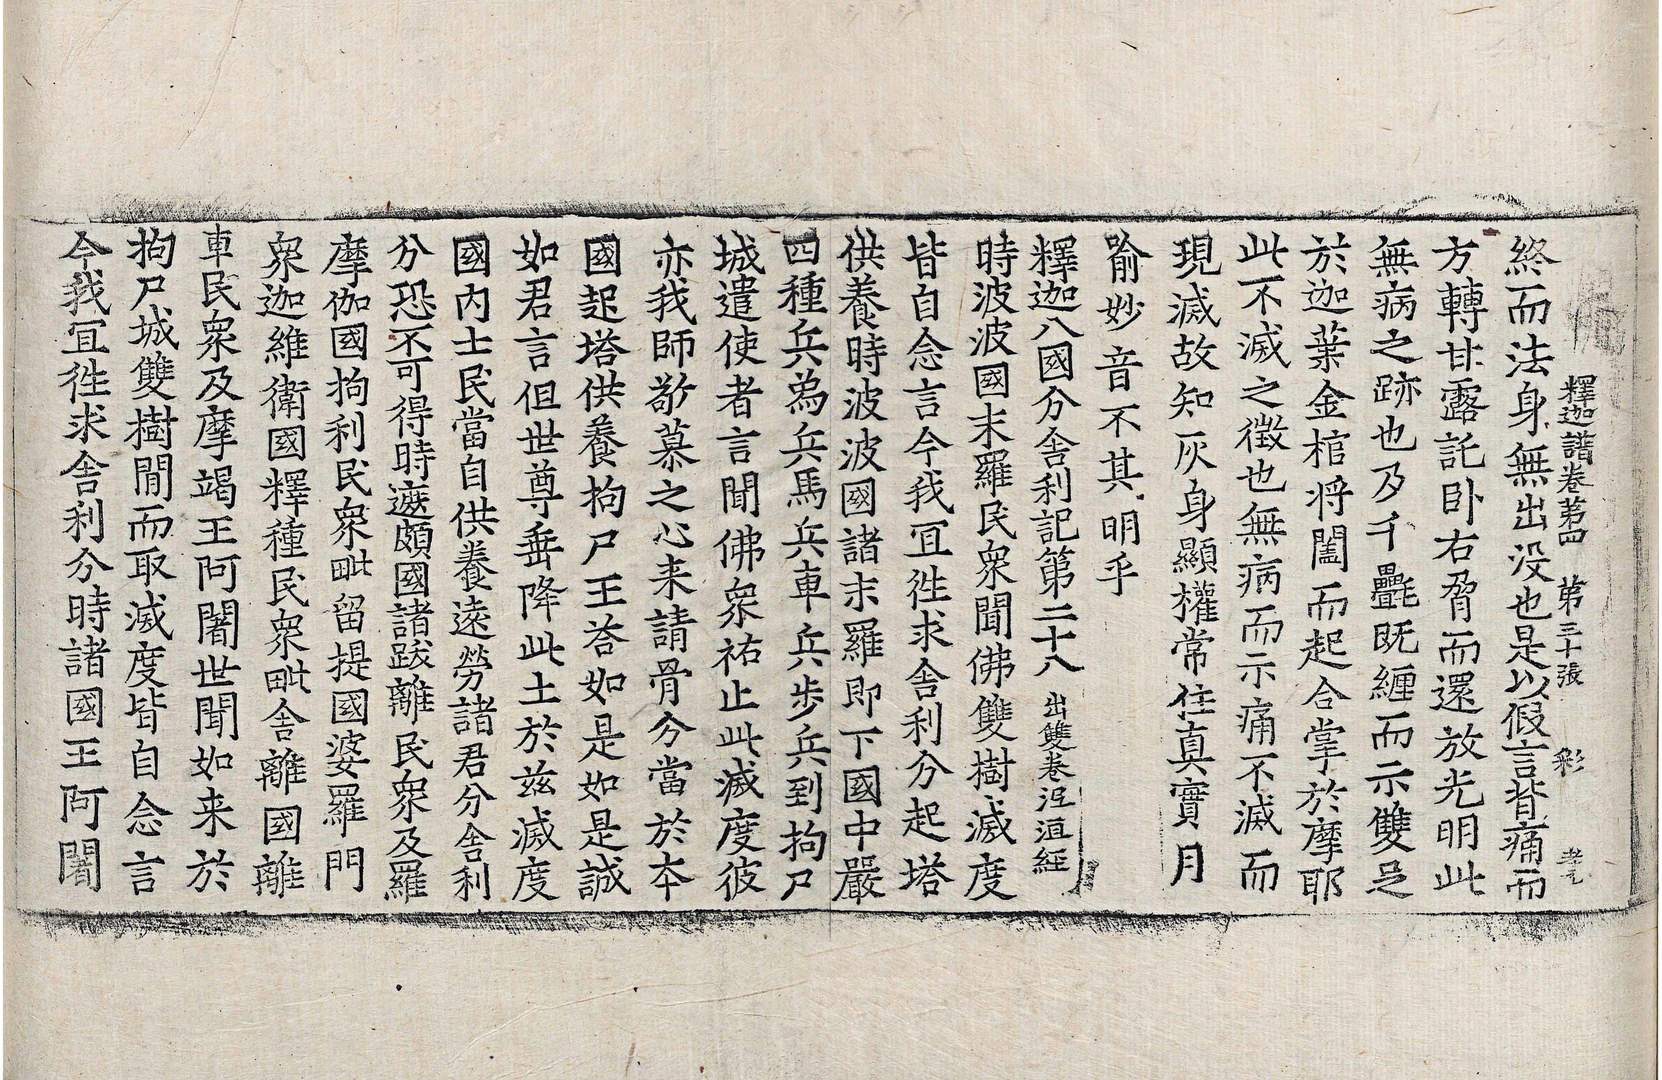 釋迦譜卷第四　第三十張　彩
終而法身無出没也是以假言背痛而
方轉甘露託卧右脅而還放光明此
無病之跡也及千㲲既纏而示雙足
於迦葉金棺将闔而起合掌於摩耶
此不滅之徵也無病而示痛不滅而
現滅故知灰身顯權常住真實月
喻妙音不其明乎
釋迦八國分舍利記第二十八　出雙卷泥洹經
時波波國末羅民衆聞佛雙樹滅度
皆自念言今我冝徃求舍利分起塔
供養時波波國諸末羅即下國中嚴
四種兵為兵馬兵車兵步兵到拘尸
城遣使者言聞佛衆祐止此滅度彼
亦我師敬慕之心来請骨分當於本
國起塔供養拘尸王荅如是如是誠
如君言但世尊垂降此土於兹滅度
國内士民當自供養遠勞諸君分舍利
分恐不可得時遮頗國諸跋離民衆及羅
摩伽國拘利民衆毗留提國婆羅門
衆迦維衛國釋種民衆毗舍離國離
車民衆及摩竭王阿闍世聞如来於
拘尸城雙樹閒而取滅度皆自念言
今我冝徃求舍利分時諸國王阿闍